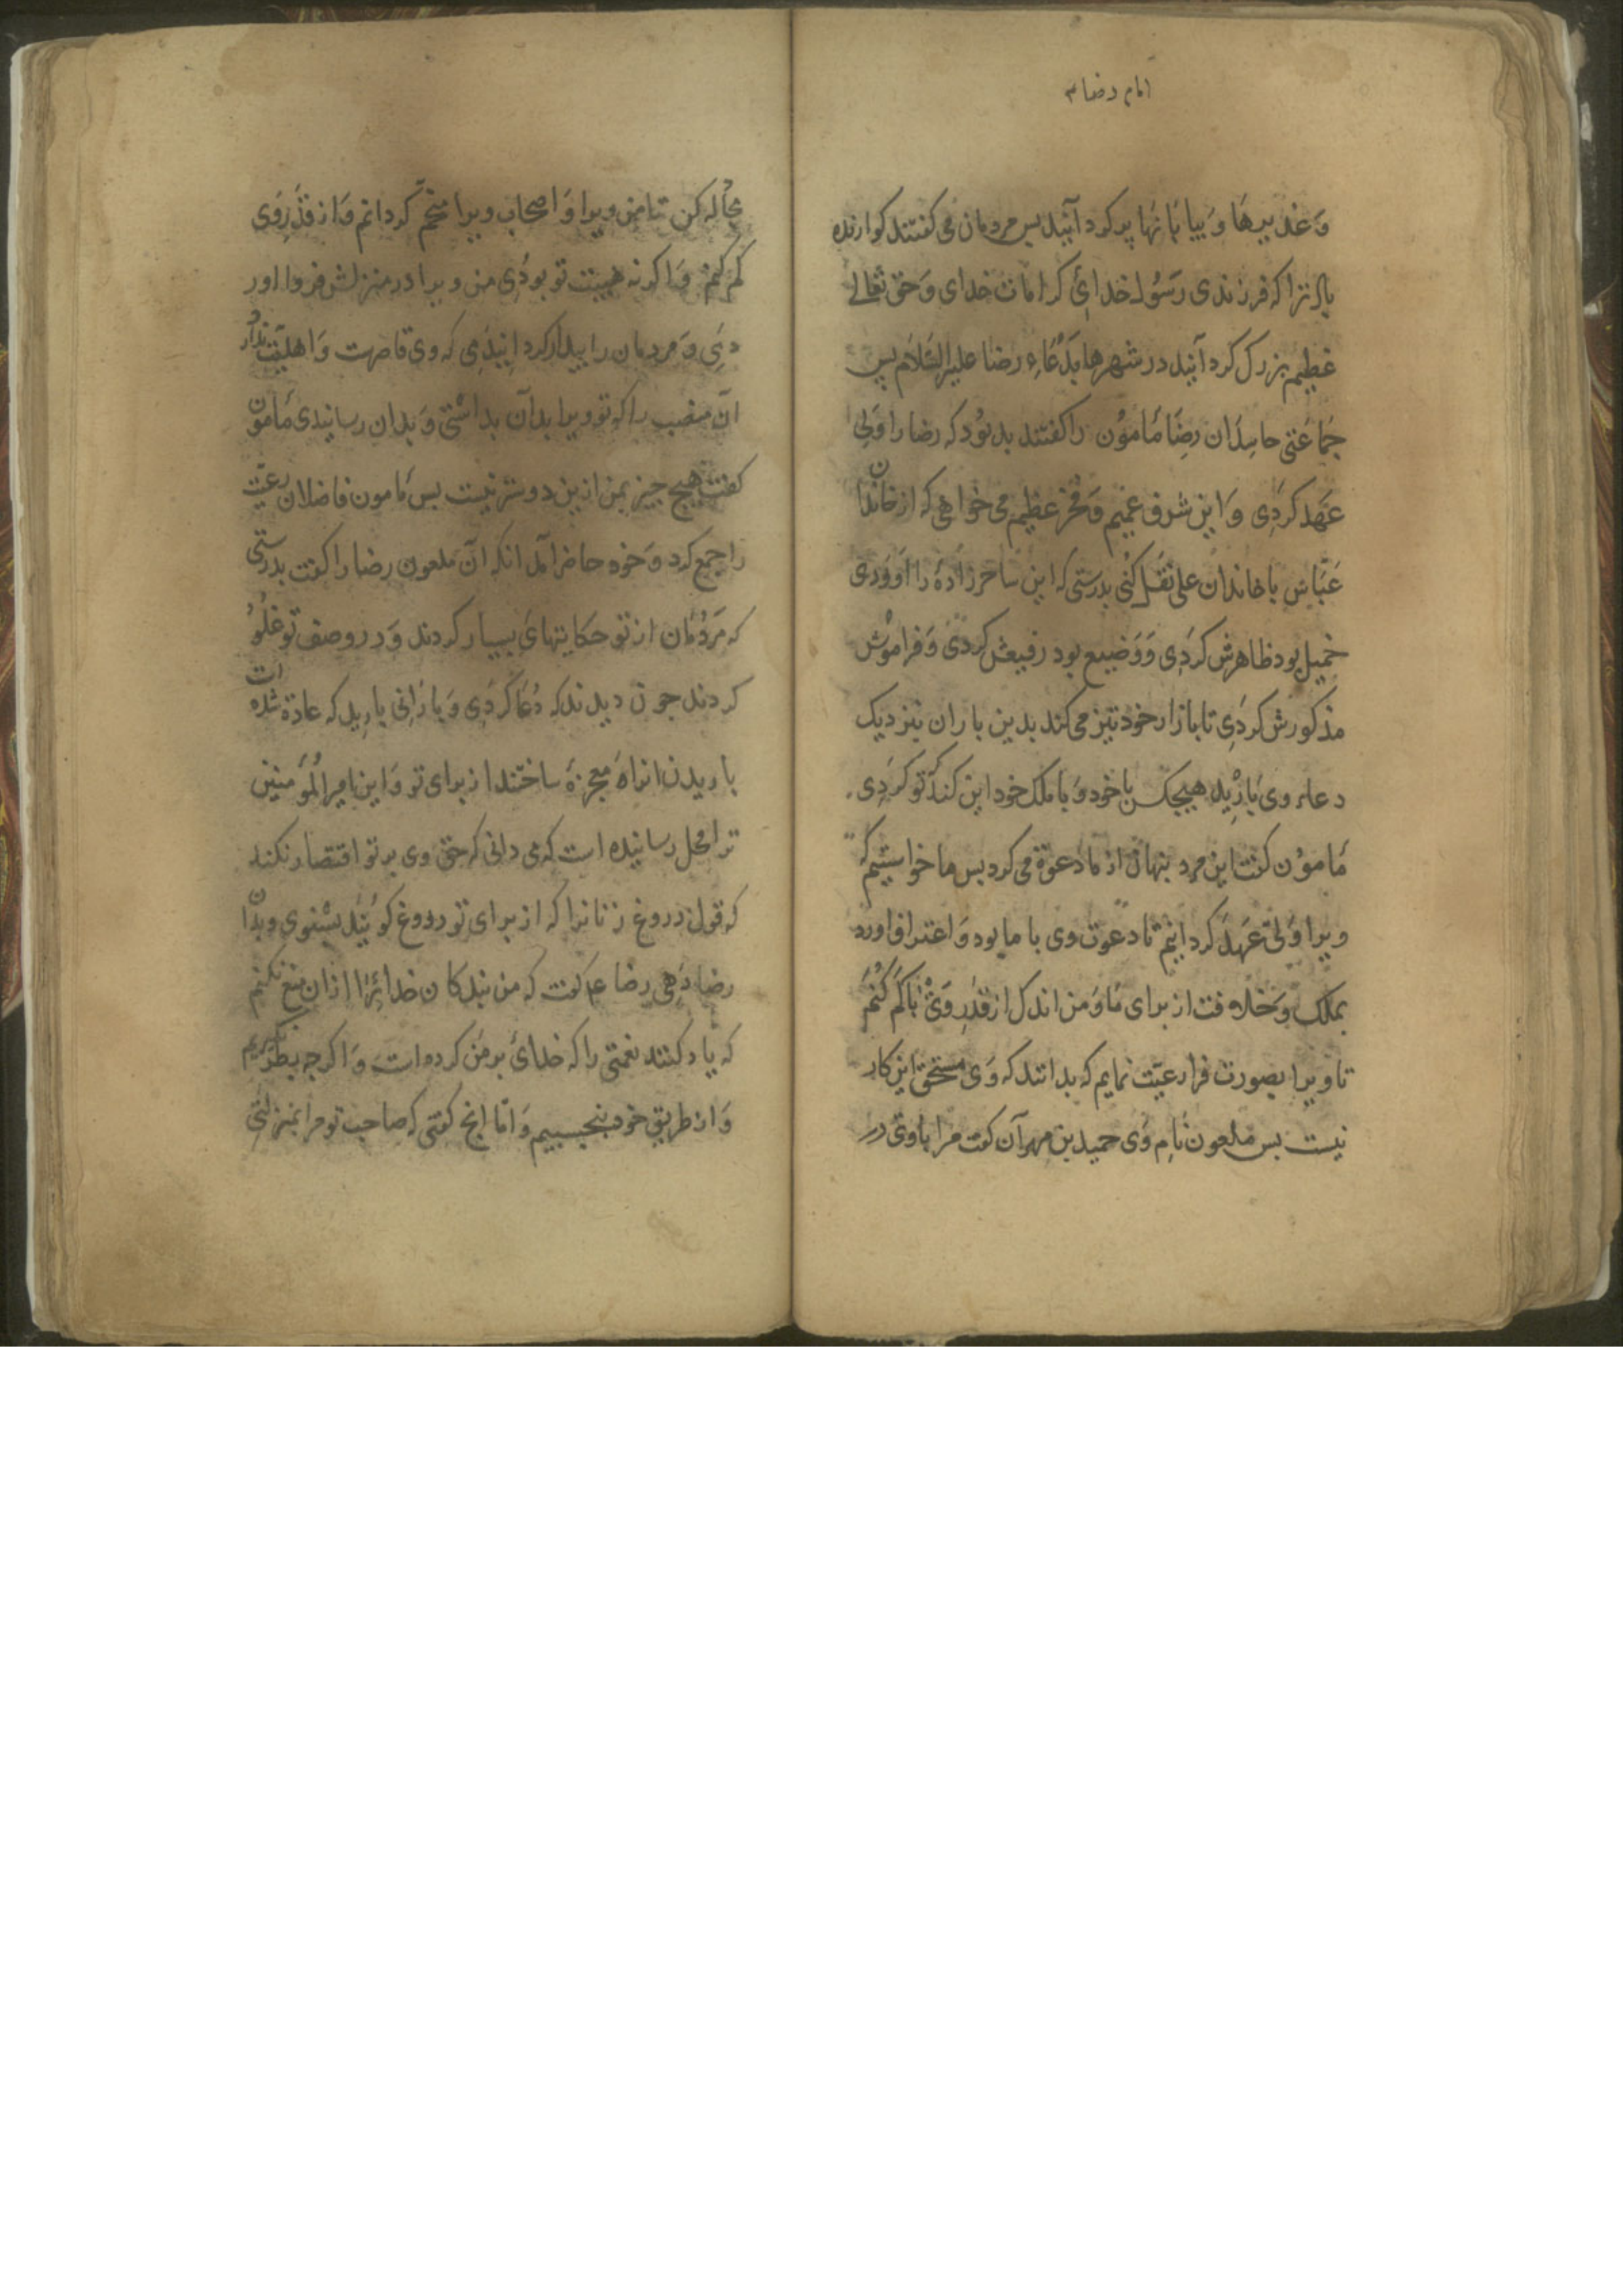 امام رضا ع
وَغدیرهَا وَبیابَانهَا پر کرد آنید بس مردمان می کفتند کوارنده
باد ترا که فرزندی رَسُول خدائ کرامات خدای وَحق تعالی
عظیم بزرک کرد آنید در شهرها بدُعَاء رضا علیه السَّلام بس
جَمَاعَتی حاسِدَان رضَا مَامؤن را کفتند بد بُود که رضا را وَلی
عَهد کردِی وَاین شرف عمیم وَفخر عظیم می خواهی که از خاندان
عَبّاس با خاندان علی نقل کنی بدرستی که این ساحر زادهٔ را آوَردی
خمیل بود ظاهرش کردِی وَوَضیع بود رفیعش کردی وَفراموُش
مذکورش کردِی تا بازار خود تیز می کند بدین باران نیز دیک
دعاء وی بَارْید هیچکس با خود وَبا ملک خود این کند که تو کردِی
مَامؤن کفت این مرد پنهان از ما دعوة می کرد بس ما خواستیم که
ویرا وَلیّ عَهد کردانیم تا دعوت وی با ما بود وَاعتراف اورد
بملک وَخلافت از برای مَا وَمن اندک از قدرِ وَیْ بَاکَم کُنَم
تا ویرا بصورت فرا رعیّت نمایم که بدانند که وَی مستحق این کار
نیست بس ملعون نَام وَی حمید بن مهرآن کفت مرا با وی در
مجادله کن تا من ویرا وَاصحاب ویرا کردانم وَاز قدرِ وَی
کم کنم وَاکر نه هیبت تو بودِی من ویرا در منزلش فروا اور
دمَی وَمردمان را بیدار کردانیدَمی که وی قاصرست وَاهلیّت ندارد
آن منصب را که تو ویرا بدآن بداشتی وَبدان رسانیدی مَامون
کفت هیچ چیز بمن ازین دوستر نیست بس مَامون فاضلان رعیّت
را جمع کرد وَخود حاضر آمد انکه آن ملعون رضا را کفت بدرستی
که مَردُمَان از تو حکایتهای بسیار کردند وَدر وصف تو غلُوّ
کردند جون دیدند که دُعَا کردِی وَبارَانی بارید که عادة شده است
باریدن انرا معجزهٔ ساختند از برای تو وَاین امیر المُؤمنین
ترا محل رسانیده است که می دانی که حق وی بر تو اقتصار نکند
که قول دروغ زنانرا که از برای تو دروغ کویَند بشنوی وبدان
رضا دَهی رضا ع کفت که من بندکان خدائرا ازان منع نکنم
که یاد کنند نعمتی را که خدائ بر من کرده است وَاکرجه بطر نکنیم
وَاز طریق خود بنجسبیم وَامّا انج کفتی که صاحب تو مرا بمنزلتی